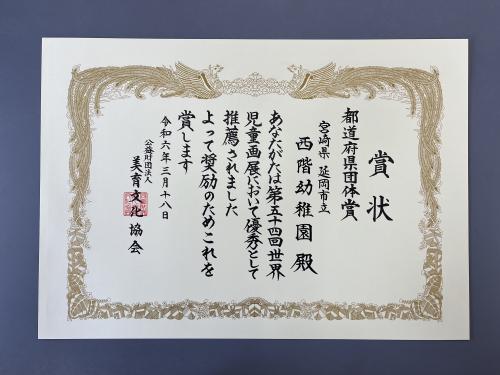 賞状
都道府県団体賞
宮崎県 延岡市立
西階幼稚園殿
あなたがたは第五十四回世界
児童画展において優秀として
推薦されました
よって奨励のためこれを
賞します
令和六年三月十八日
公益財団法人
美育文化協会